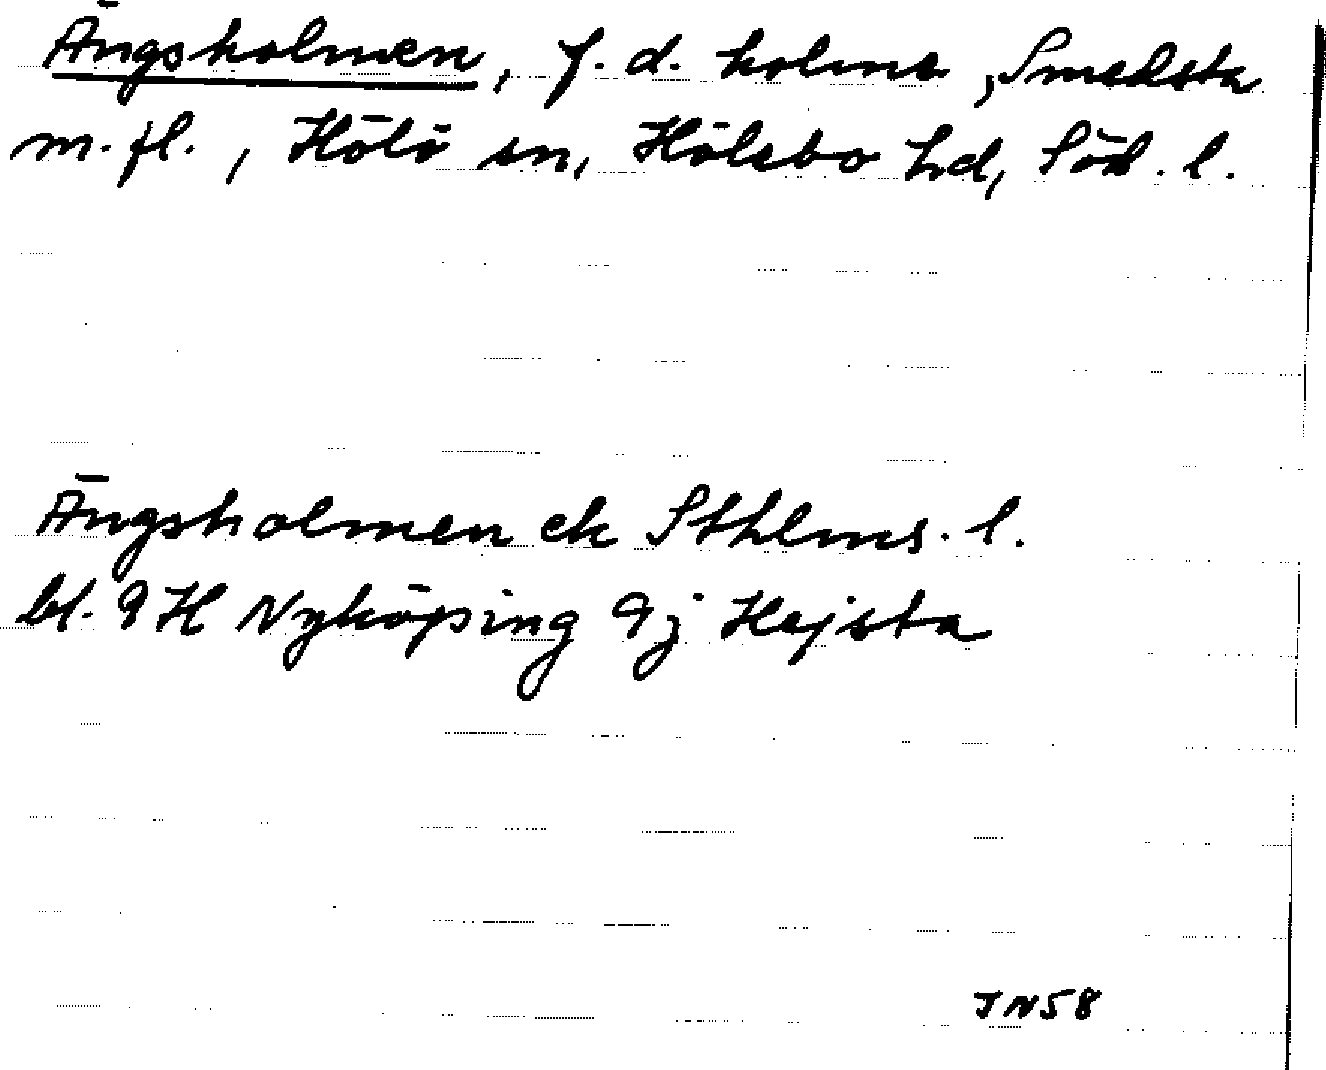 Ängsholmen, f. d. holme, Smedsta
m. fl., Hölö sn, Hölebo hd, Söd. l.
Ängsholmen ek Sthlms. l.
bl. 9H Nyköping 9j Hejsta
JN58